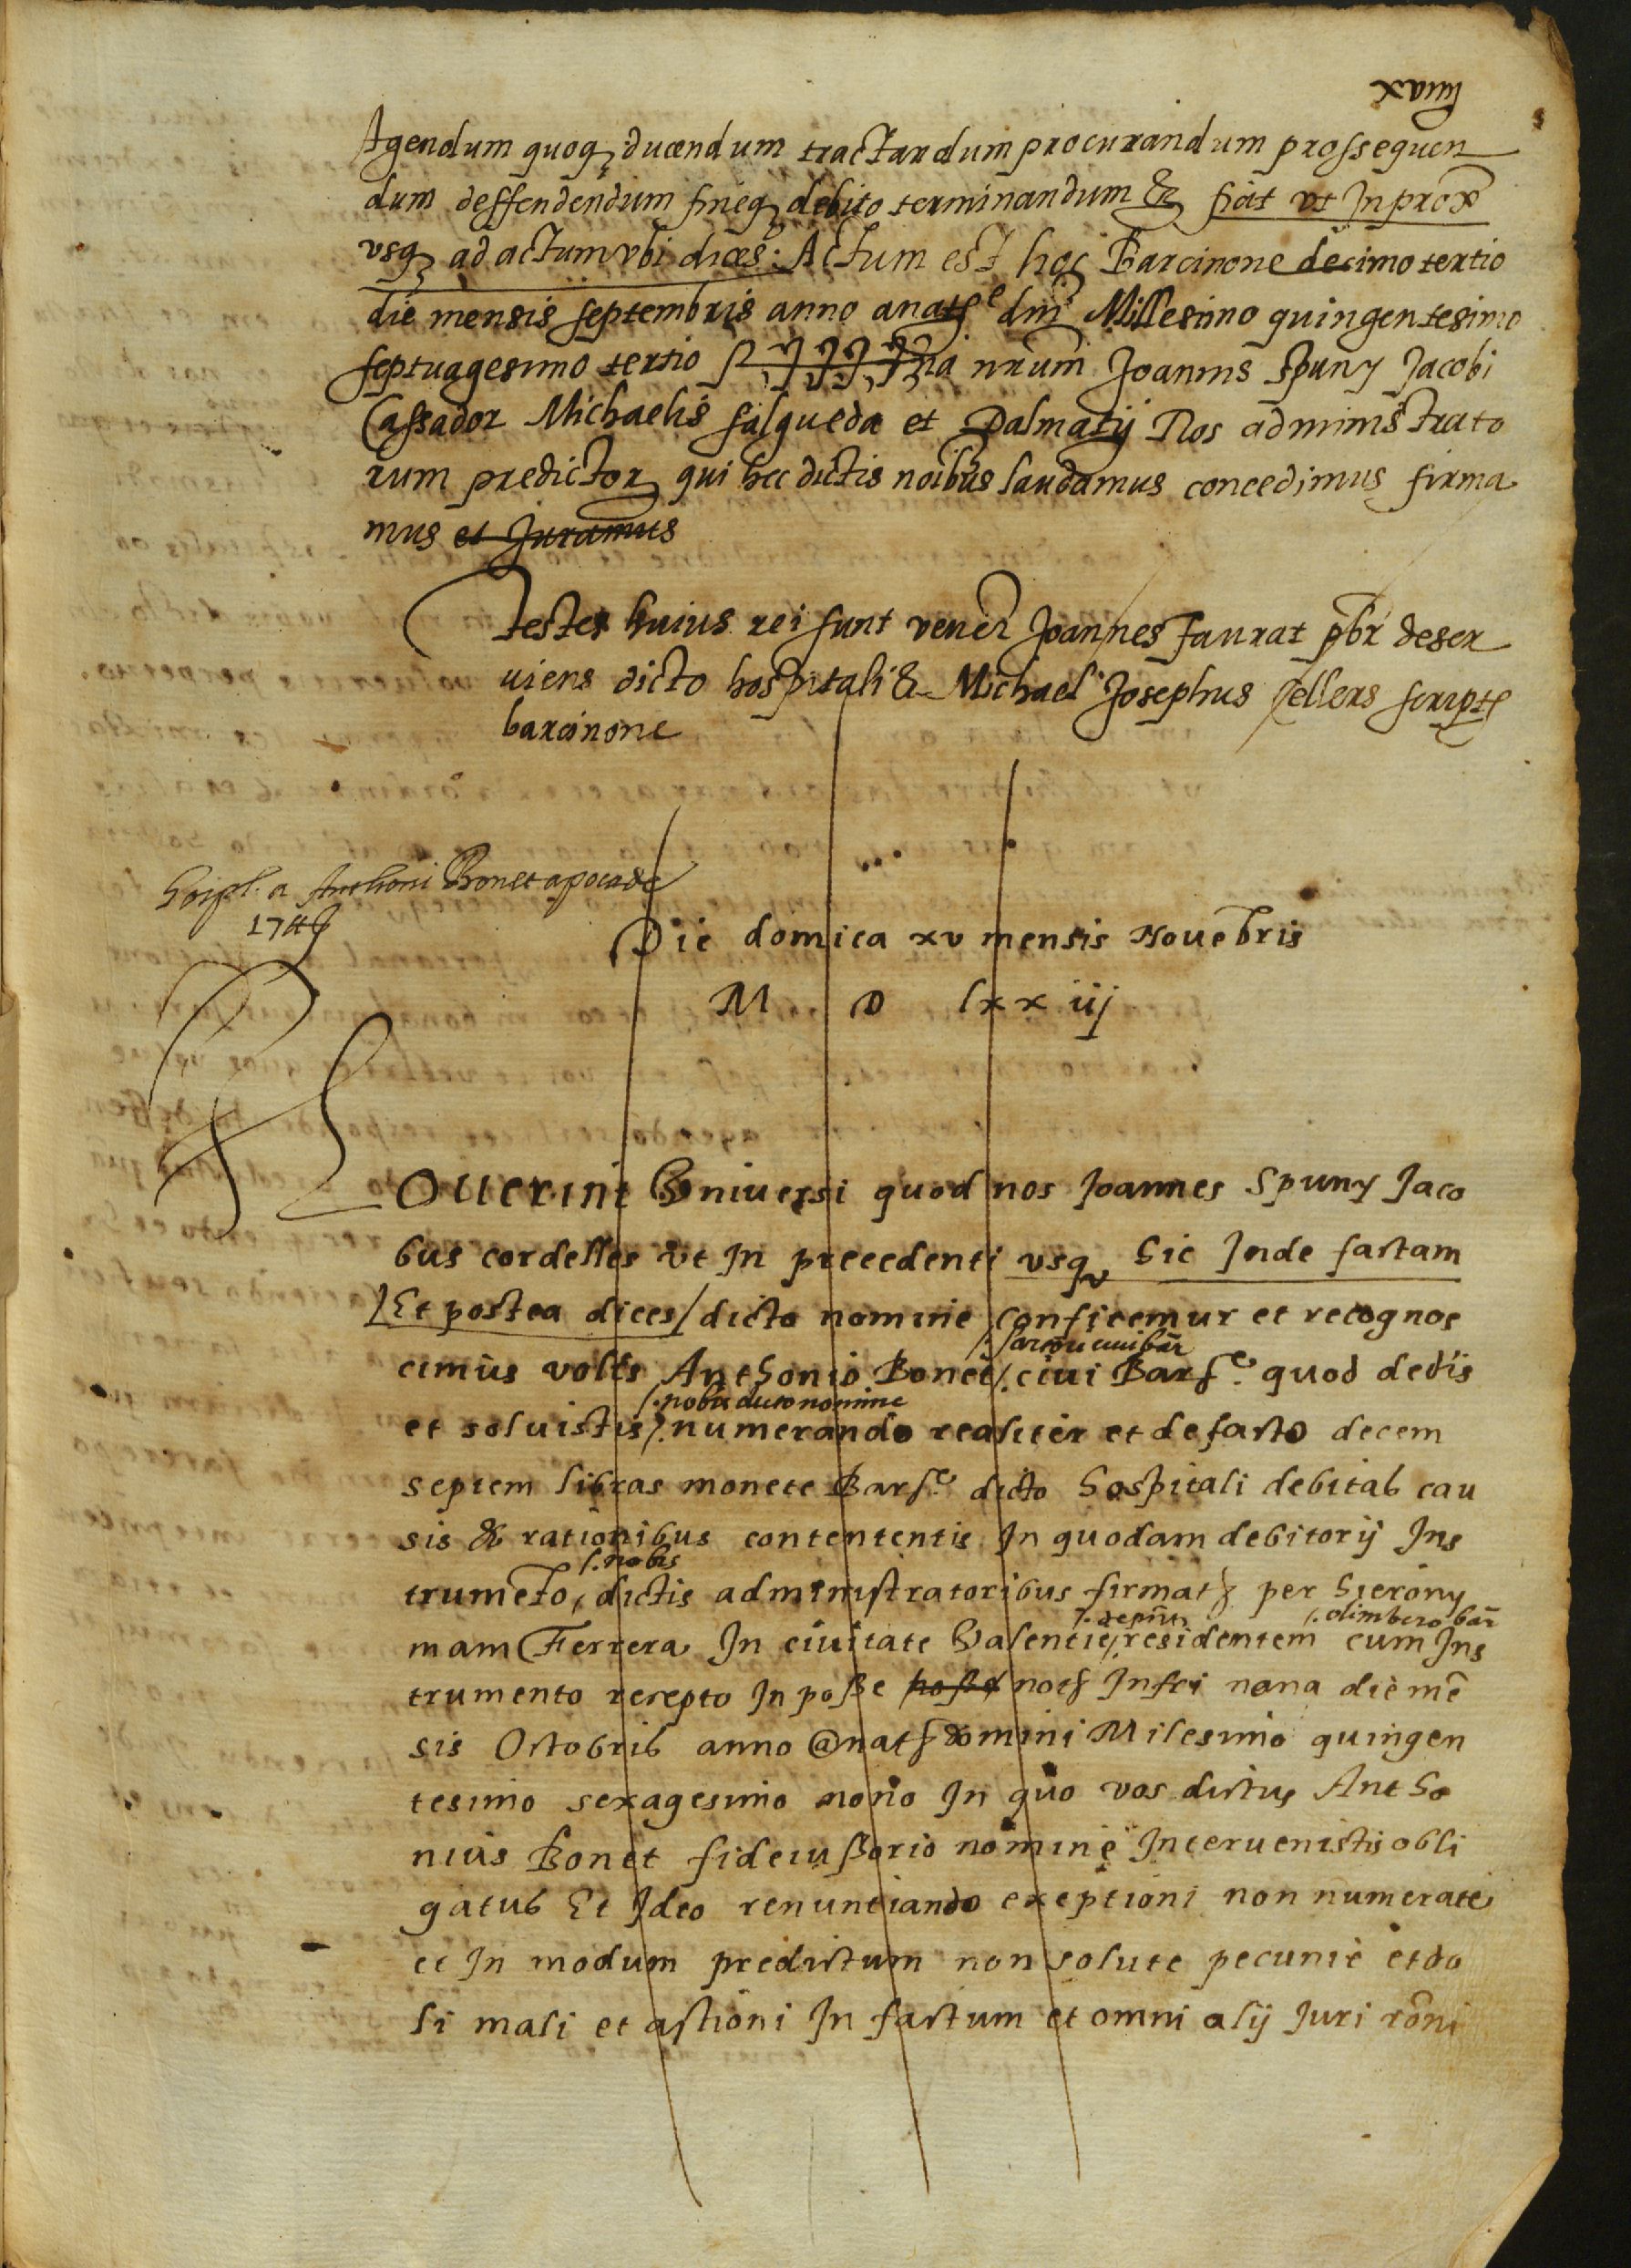 xviiij
Agendum quoq ducendum tractandum procurandum prossequen
dum deffendendum fineq debito terminandum & fiat vt In prox
vsq ad actum vbi dices: Actum est hoc Barcinone decimo tertio
die mensis septembris anno anat dni Millesimo quingentesimo
septuagesimo tertio na nrum Joannis Spuny Jacobi
Cassador Michaelis salgueda et Dalmatij Ros administrato
rum predictor qui hec dictis noibus laudamus concedimus firma
mus et Juramus
Testes huius rei sunt vener Joannes Faurat pbr deser
uiens dicto hospitali & Michael Josephus Cellers script
barcinone
hospl. a Anthoni Bonet apoca de
17 ℔
Die domica xv mensis Nouebris
M D lxx iij
Nouerint Vniuersi quod nos Joannes Spuny Jaco
bus cordelles vt In precedenti vsq hic Inde factam
/Et postea dices/ dicto nomine confitemur et recognos
cimus vobis Anthonio Bonet /. ciui Bar. quod dedis
/. nobis dicto nomine
et soluistis /. numerando realiter et de facto decem
septem libras monete Bar. dicto hospitali debitas cau
sis & rationibus contententis In quodam debitorij Ins
/. nobis
trumeto, dictis administratoribus firmat per hierony
/. olim vero bar
mam Ferrera In ciuitate Valentie, residentem cum Ins
trumento recepto In posse posse not Infri nona die me
sis Octobris anno @nat domini Milesimo quingen
tesimo sexagesimo nono In quo vos dictus Antho
nius Bonet fideiussorio nomine Interuenistis obli
gatus Et Ideo renuntiando exeptioni non numerate
et In modum predictum non solute pecunie et do
li mali et actioni In factum et omni alij Juri roni